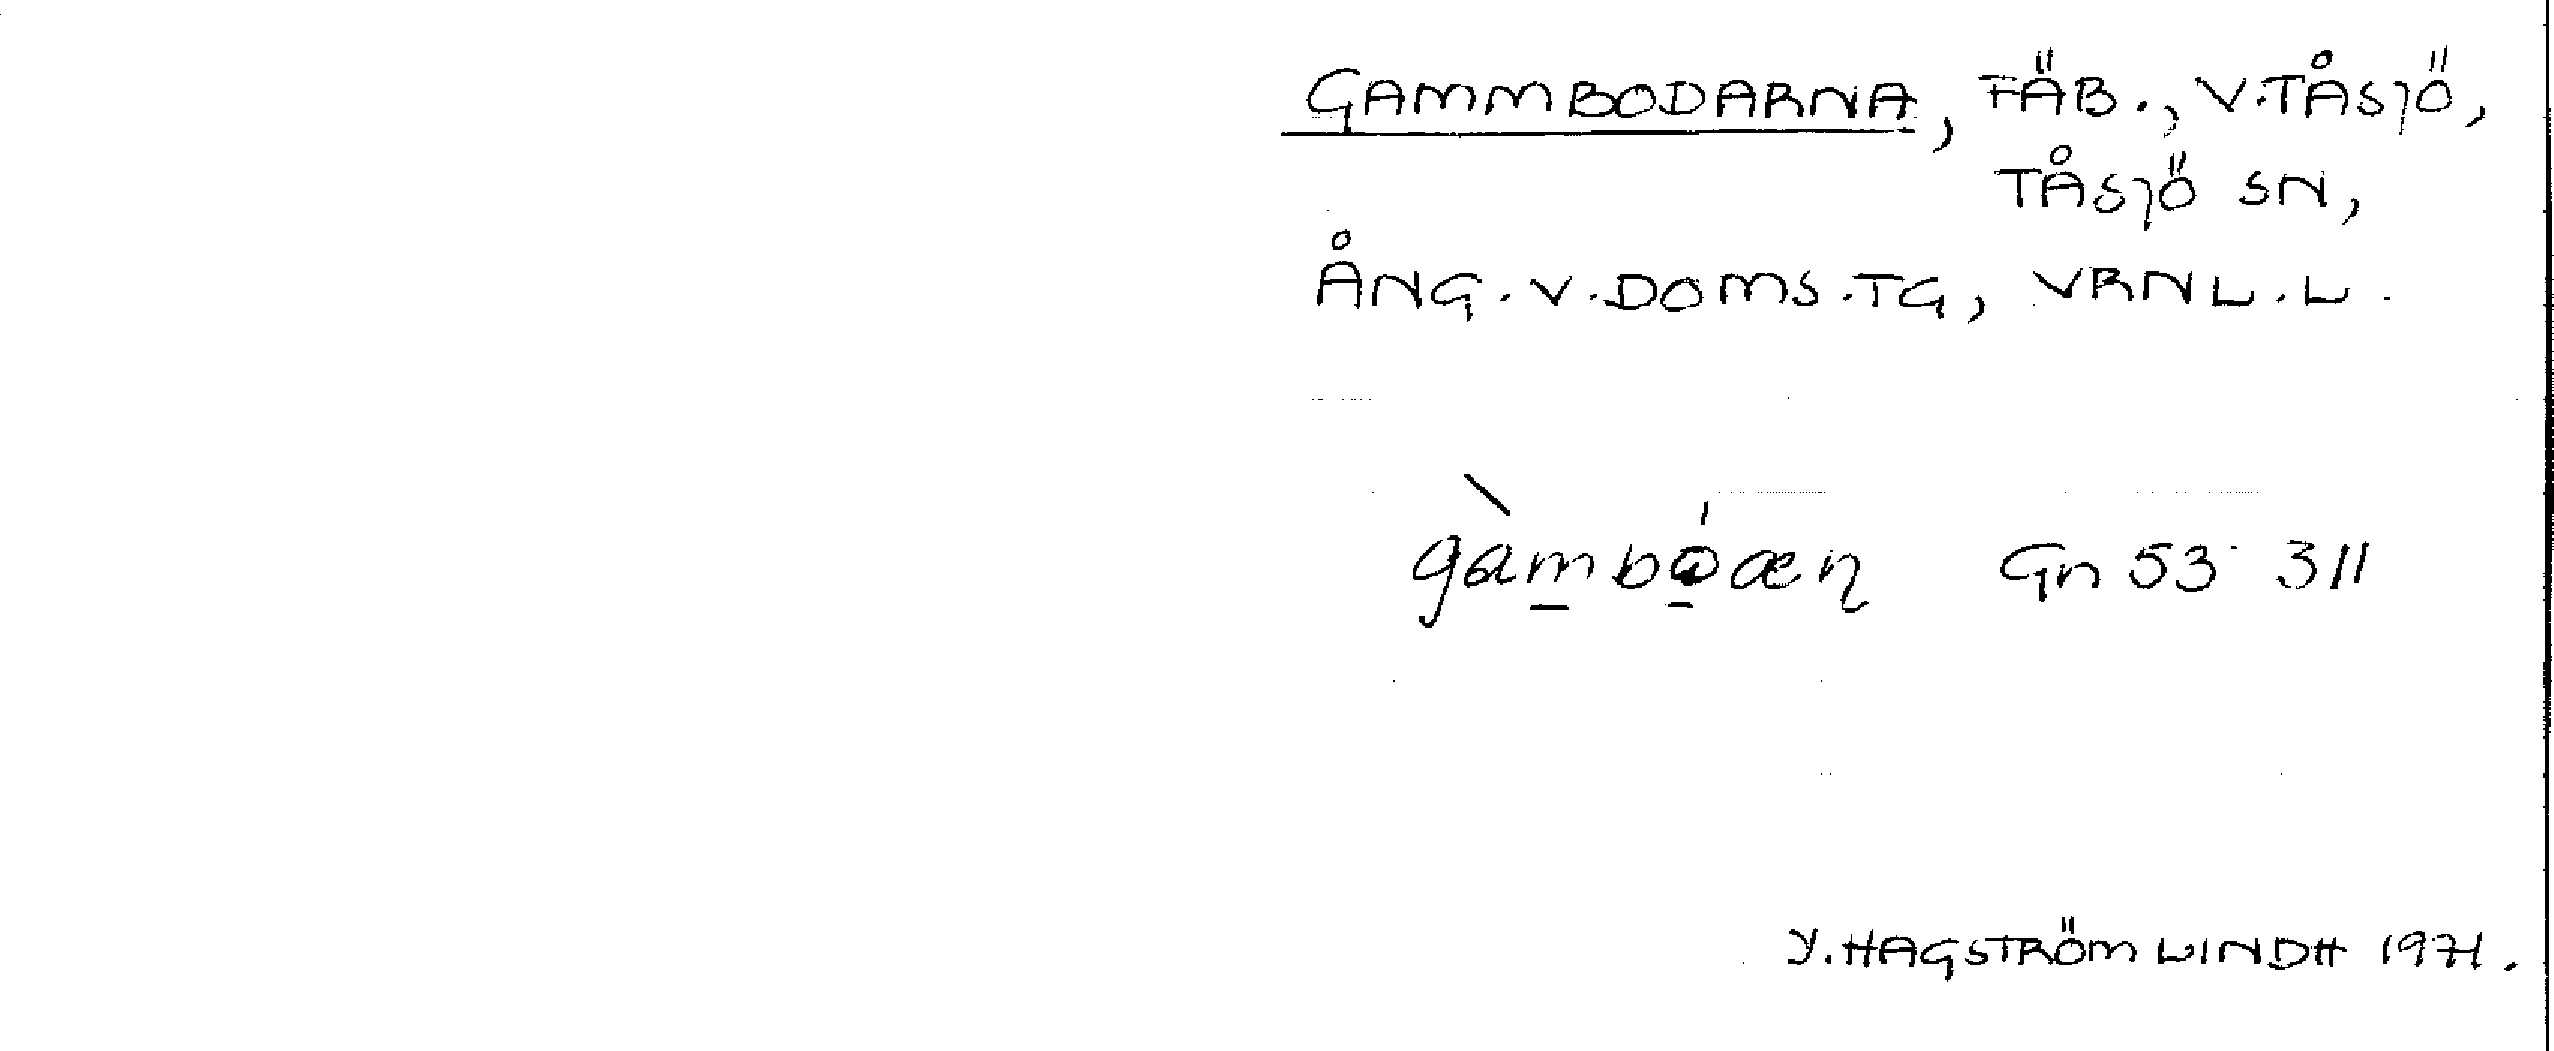 GAMMBODARNA, FÄB., V.TÅSJÖ,
TÅSJÖ SN,
ÅNG.V.DOMS.TG, VRNL.L.
Gn 53 311
Y.HAGSTRÖM LINDH 1971.